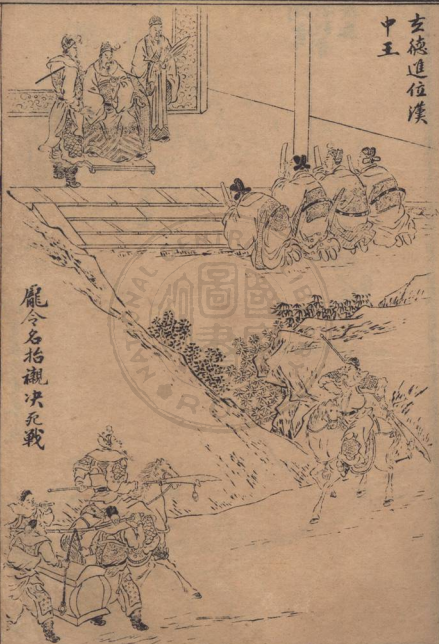 玄德進位漢
中王
龐令名抬櫬決死戰